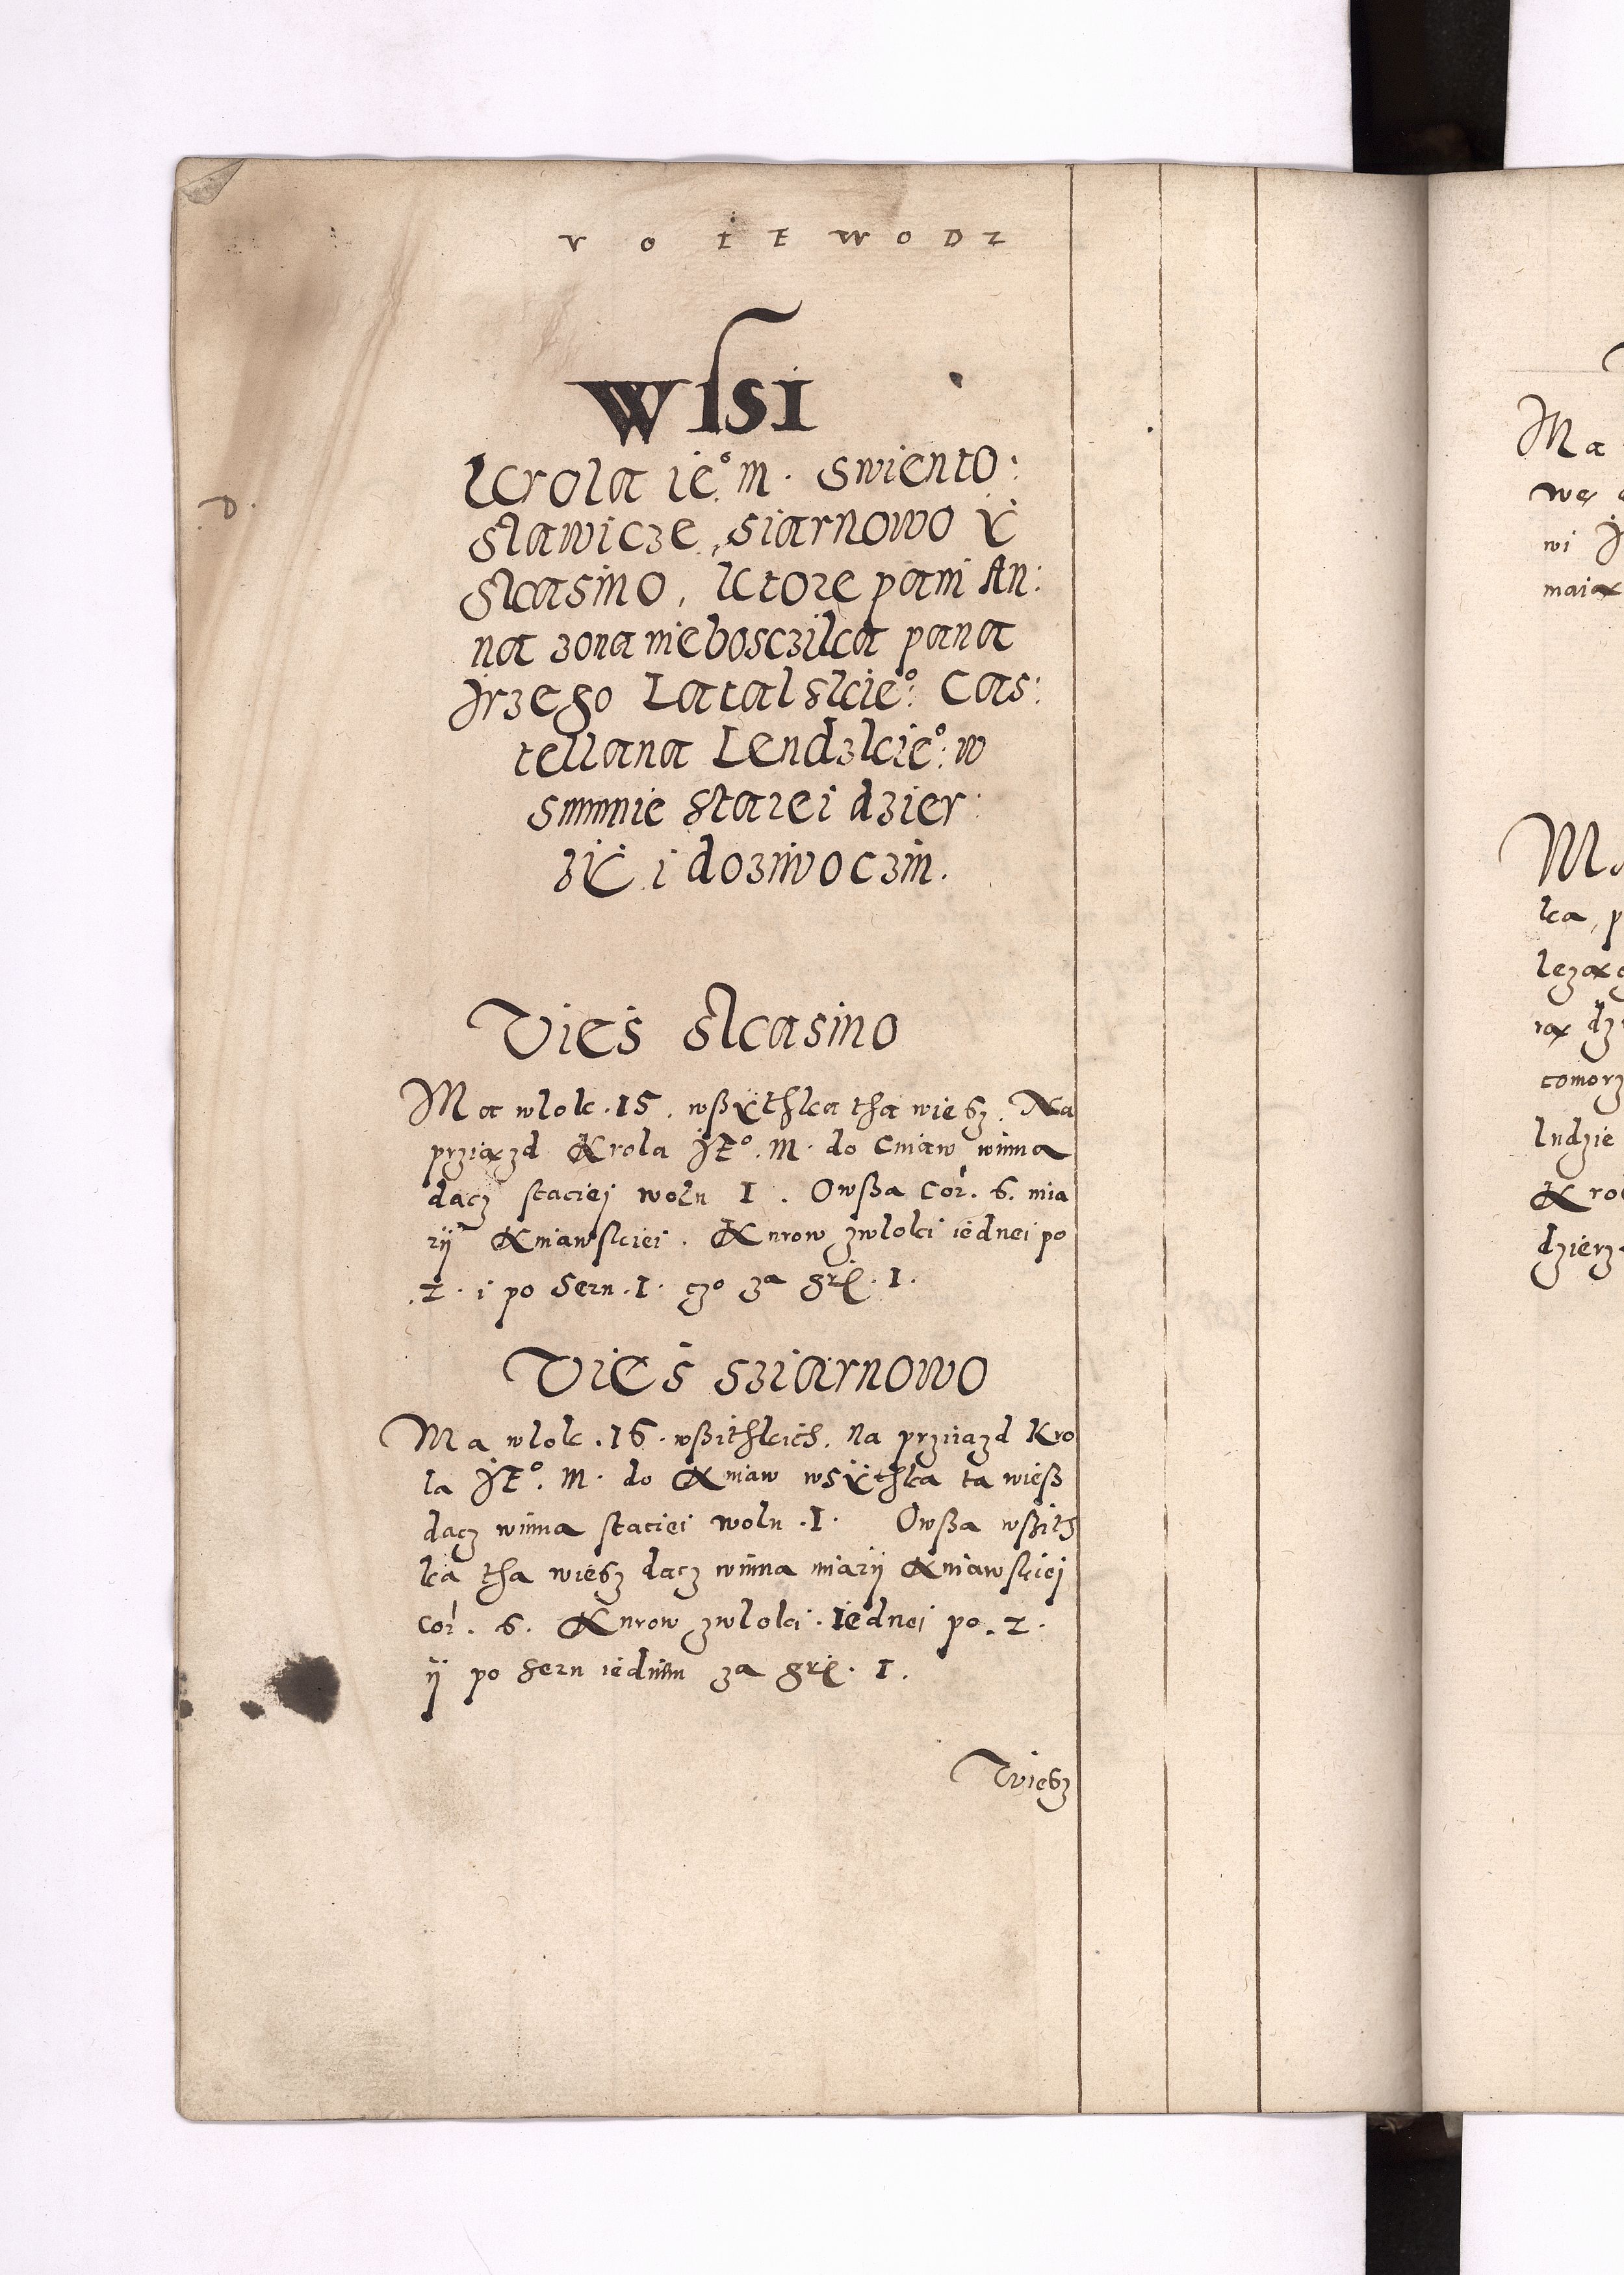 VOIEWODZ
WſSI
krola ie° m. Swiento:
slawicze, Siarnowo ÿ
Skasino, ktore pani An:
na zona nieboszczika pana
Jrzego Latalskie°: Cas:
tellana Lendzkie°: w
summie starei dzier:
zÿ i dozÿwoczin.
.D.
Vieś Skasino
Ma wlok .15. wßÿthka tha wiesz. Na
prziazd Krola JE°. M. do Cuiaw winna
dacz staciej wolu I. Owßa Cor. 6. mia
rij Kuiawskiei. Kurow zwloki iednei po
.2. i po Seru .I. czo za grž. I.
Vieś Sziarnowo
Ma wlok .16. wßithkich. Na prziiazd Kro
la JE°. M. do Kuiaw wsÿthka ta wieß
dacz winna staciei wolu .I. Owßa wßith
ka tha wiesz dacz winna miarij Kuiawskiej
Cor. 6. Kurow zwloki .Iednei po .2.
ij po Seru iednim za grž. I.
Wiesz
Ma
we
wi J
maia
Ma
ka, p
dz
comorz
ludzie
Kro
dzierz